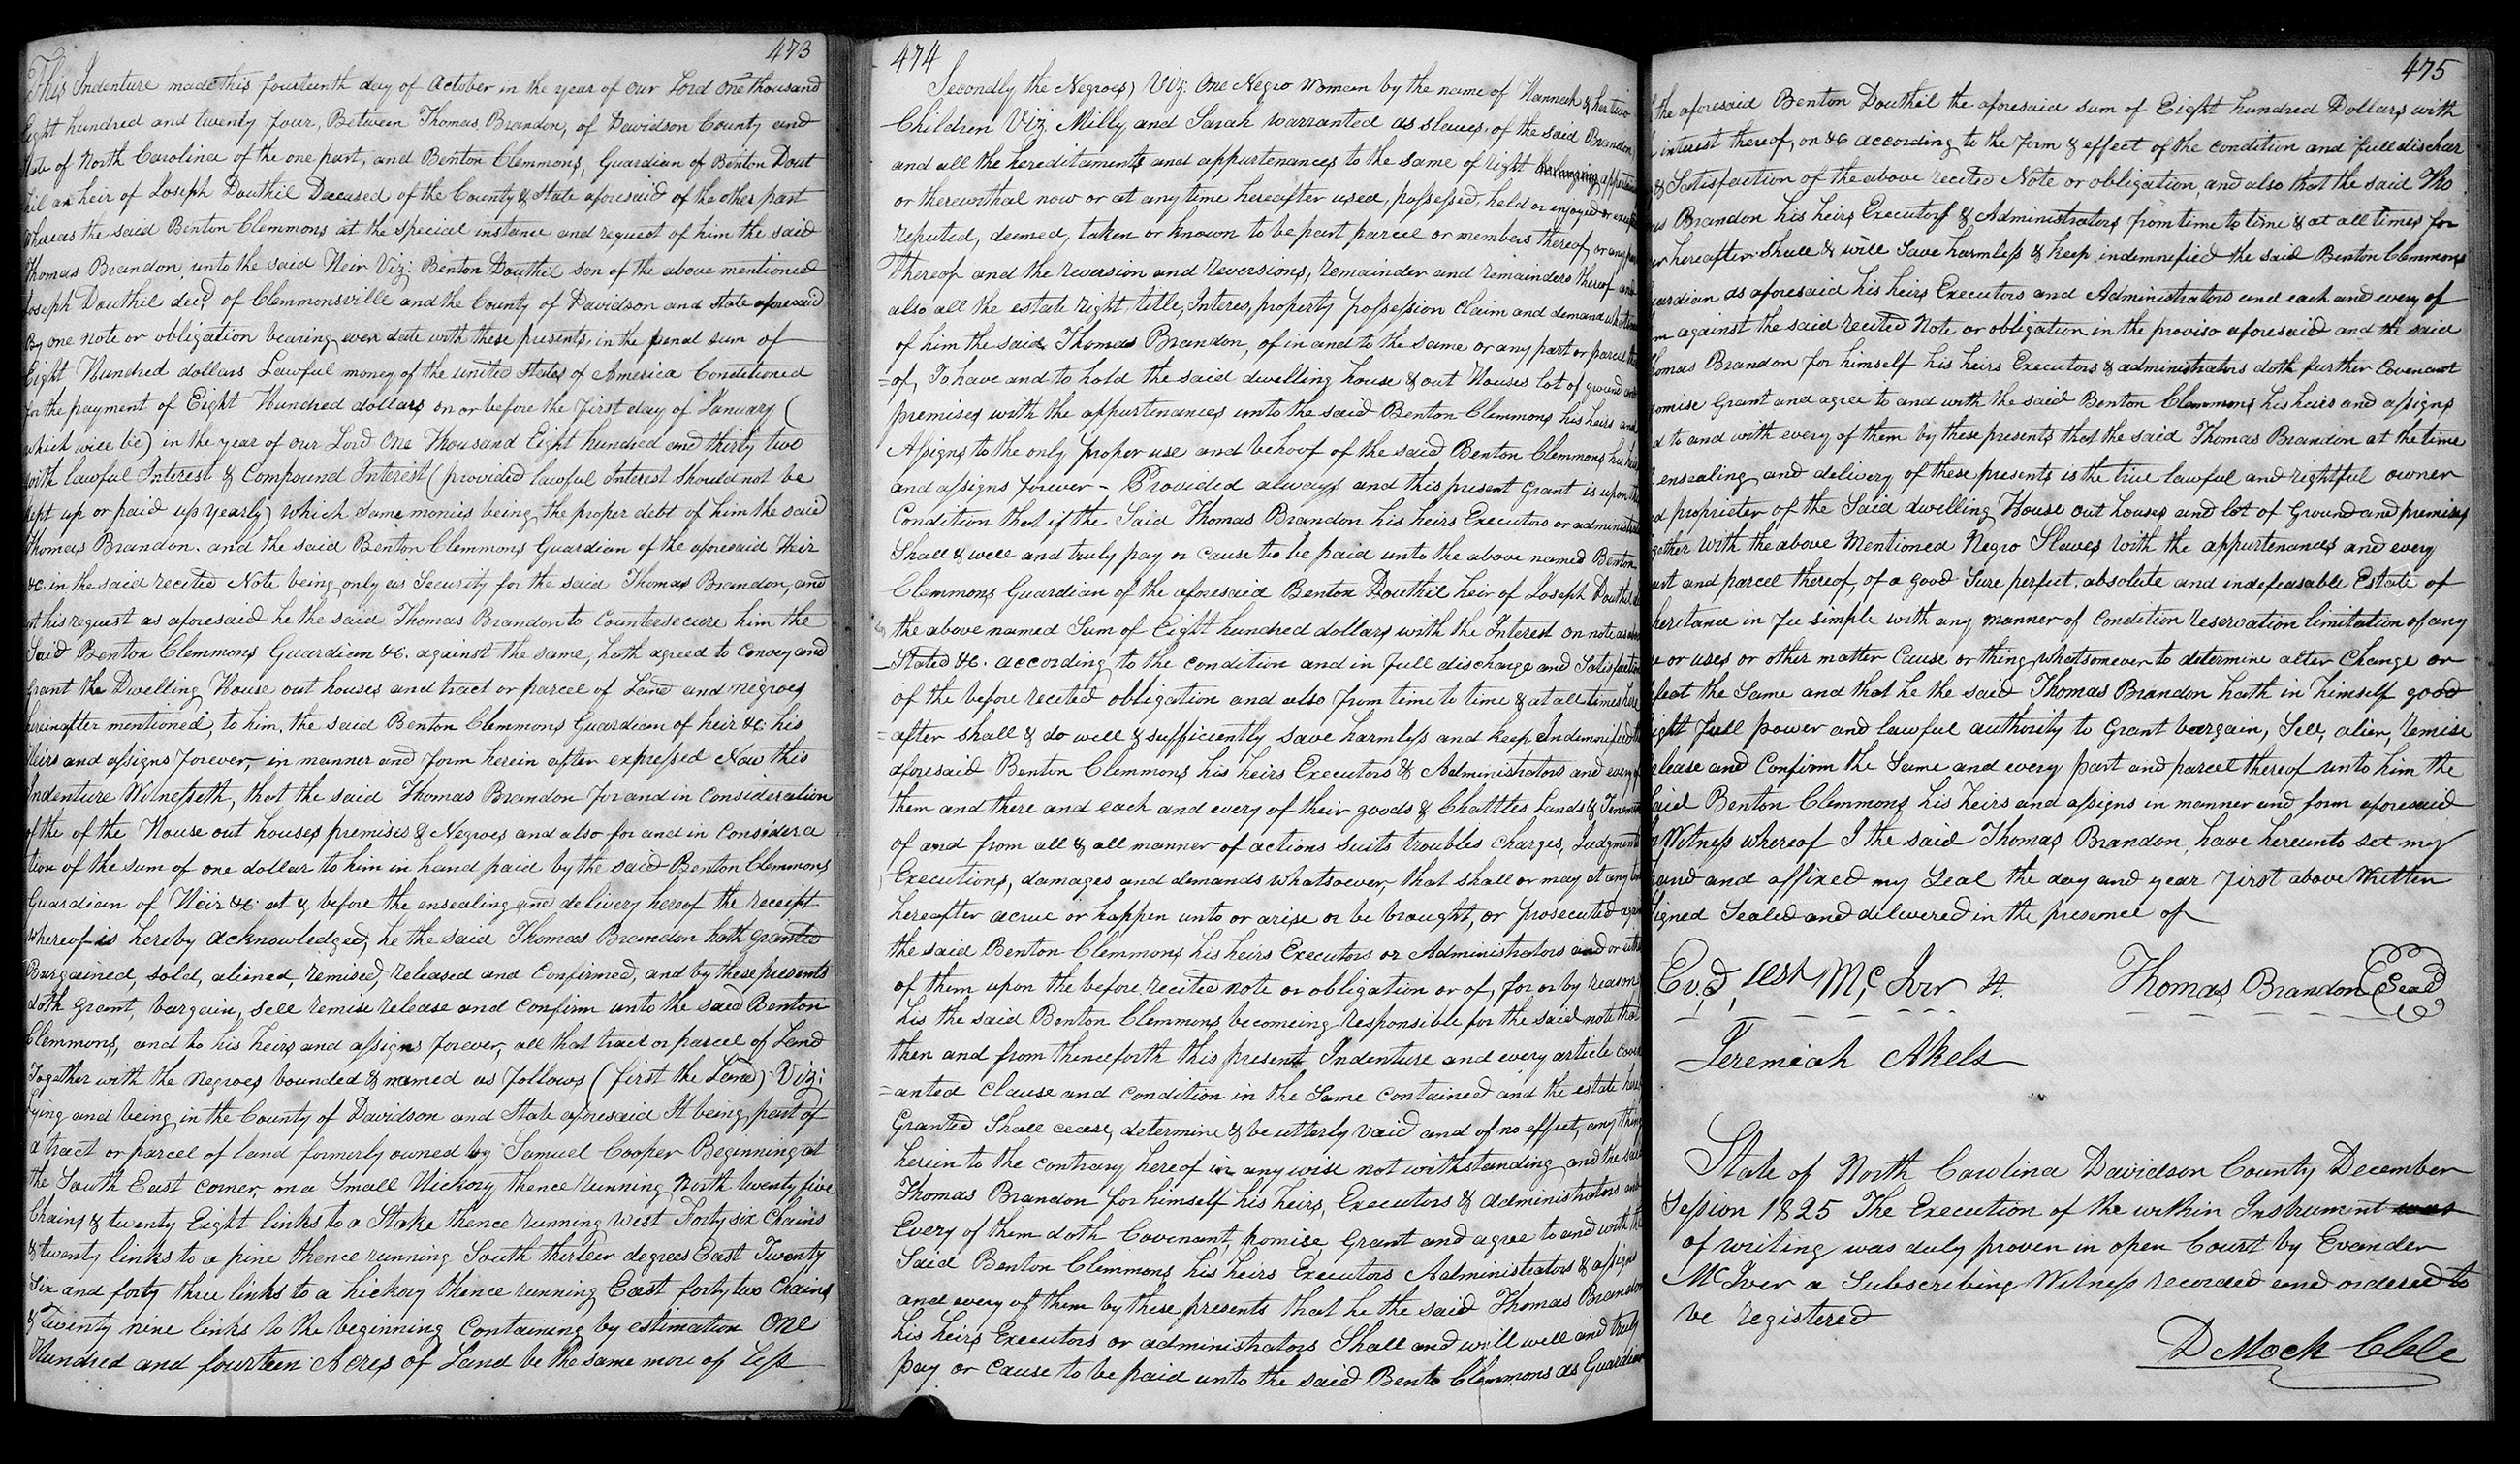 473
This Indenture made this fourteenth day of October in the year of our Lord one thousand
Eight hundred and twenty four, Between Thomas Brandon, of Davidson County and
State of North Carolina of the one part, and Benton Clemmons, Guardian of Benton Dout
hil an heir of Joseph Douthil Deceased of the County & State aforesaid of the other part
Whereas the said Benton Clemmons at the special instance and request of him the said
Thomas Brandon, unto the said Heir Viz; Benton Douthil son of the above mentioned
Joseph Douthil decd. of Clemmonsville and the County of Davidson and State aforesaid
By one note or obligation bearing even date with these presents, in the penal sum of
Eight Hundred dollars Lawful money of the united States of America Conditioned
for the payment of Eight Hundred dollars on or before the first day of January (
which will be) in the year of our Lord One Thousand Eight hundred and thirty two
with lawful Interest & Compound Interest (provided lawful Interest Should not be
kept up or paid up yearly) which same monies being the proper debt of him the said
Thomas Brandon. and the said Benton Clemmons Guardian of the aforesaid Heir
&c. in the said recited Note being only as Security for the said Thomas Brandon, and
at his request as aforesaid he the said Thomas Brandon to Countersecure him the
Said Benton Clemmons Guardian &c. against the same, hath agreed to Convey and
Grant the Dwelling House out houses and tract or parcel of Land and negroes
hereinafter mentioned, to him, the said Benton Clemmons Guardian of heir &c. his
Heirs and assigns forever, in manner and form herein after expressed Now this
Indenture Witnesseth, that the said Thomas Brandon for and in Consideration
of the of the House out houses premises & Negroes and also for and in Considera
tion of the sum of one dollar to him in hand paid by the said Benton Clemmons
Guardian of Heir &c. at & before the ensealing and delivery hereof the receipt
whereof is hereby acknowledged, he the said Thomas Brandon hath granted
Bargained, sold, aliened, remised, released and Confirmed, and by these presents
doth grant, bargain, sell remise release and confirm unto the said Benton
Clemmons, and to his Heirs and assigns forever, all that tract or parcel of Land
Together with the Negroes bounded & named as follows (first the Land) Viz:
lying and being in the County of Davidson and State aforesaid It being part of
a tract or parcel of land formerly owned by Samuel Cooper Beginning at
the South East corner, on a Small Hickory thence running North twenty five
Chains & twenty Eight links to a Stake thence running West Forty six Chains
& twenty links to a pine thence running South thirteen degrees East Twenty
Six and forty three links to a hickory thence running East forty two Chains
& Twenty nine links to the beginning Containing by estimation One
Hundred and fourteen Acres of Land be the same more of Less
474
Secondly the Negroes) Viz: One Negro Woman by the name of Hannah & her two
Children Viz. Milly and Sarah warranted as slaves, of the said Brandon
and all the hereditaments and appurtenances to the same of right belonging
or therewithal now or at any time hereafter used, possessed, held or enjoyed or
reputed, deemed, taken or known to be part parcel or members thereof, or any
Thereof and the reversion and reversions, remainder and remainders thereof and
also all the estate right, title, Interes, property possession Claim and demand
of him the said Thomas Brandon, of in and to the same or any part or parcel
=of, To have and to hold the said dwelling house & out Houses lot of ground and
premises with the appurtenances unto the said Benton Clemmons his heirs and
Assigns to the only proper use and behoof of the said Benton Clemmons his heirs
and assigns forever - Provided always and this present Grant is upon the
Condition that if the Said Thomas Brandon his heirs Executors or
Shall & well and truly pay or cause to be paid unto the above named Benton
Clemmons Guardian of the aforesaid Benton Douthil heir of Joseph Douthil
the above named Sum of Eight hundred dollars with the Interest on note as
Stated &c. according to the condition and in full discharge and Satisfaction
of the before recited obligation and also from time to time & at all times here
=after shall & do well & sufficiently save harmless and keep Indemnified
aforesaid Benton Clemmons his heirs Executors & Administrators and every
them and there and each and every of their goods & Chattles Lands &
of and from all & all manner of actions suits troubles Charges, Judgments
Executions, damages and demands whatsoever, that shall or may at any
hereafter accrue or happen unto or arise or be brought, or prosecuted
the said Benton Clemmons his heirs Executors or Administrators and or
of them upon the before recited note or obligation or of, for or by reason
his the said Benton Clemmons becomeing responsible for the said note that
then and from thenceforth this present Indenture and every article
=anted Clause and condition in the Same contained and the estate
Granted Shall cease, determine & be utterly void and of no effect, any thing
herein to the contrary hereof in any wise not withstanding and the said
Thomas Brandon for himself his heirs, Executors & administrators and
Every of them doth Covenant, promise, Grant and agree to and with the
Said Benton Clemmons his heirs Executors Administrators & assigns
and every of them by these presents that he the said Thomas Brandon
his heirs Executors or administrators Shall and will well and truly
pay or cause to be paid unto the said Bento Clemmons as Guardian
475
the aforesaid Benton Douthil the aforesaid sum of Eight hundred Dollars with
interest thereof, on &c according to the form & effect of the condition and full dischar
& Satisfaction of the above recited Note or obligation, and also that the said Tho
Brandon his heirs Executors & Administrators from time to time & at all times for
hereafter shall & will Save harmless & keep indemnified the said Benton Clemmons
Guardian as aforesaid his heirs Executors and Administrators and each and every of
against the said recited Note or obligation in the proviso aforesaid and the said
Thomas Brandon for himself his heirs Executors & administrators doth further Covenant
promise Grant and agree to and with the said Benton Clemmons his heirs and assigns
to and with every of them by these presents that the said Thomas Brandon at the time
ensealing and delivery of these presents is the true lawful and rightful owner
proprieter of the Said dwelling House out houses and lot of Ground and premises
together with the above Mentioned Negro Slaves with the appurtenances and every
part and parcel thereof, of a good Sure perfect absolute and indefeasable Estate of
heritance in Fee simple with any manner of Condition reservation limitation of any
or uses or other matter Cause or thing whatsomever to determine alter Change or
the Same and that he the said Thomas Brandon hath in himself good
right full power and lawful authority to Grant bargain, Sell, alien, remise
release and Confirm the Same and every part and parcel thereof unto him the
Said Benton Clemmons his heirs and assigns in manner and form aforesaid
In Witness whereof I the said Thomas Brandon, have hereunto set my
hand and affixed my Seal the day and year first above Written
Signed Sealed and delivered in the presence of
Evd, Test Mc Iver Jt. Thomas Brandon (Seal)
Jeremiah Akels
State of North Carolina Davidson County December
Session 1825 The Execution of the within Instrument was
of writing was duly proven in open Court by Evander
McIver a Subscribing Witness recorded and ordered to
be registered
D Mock Clk